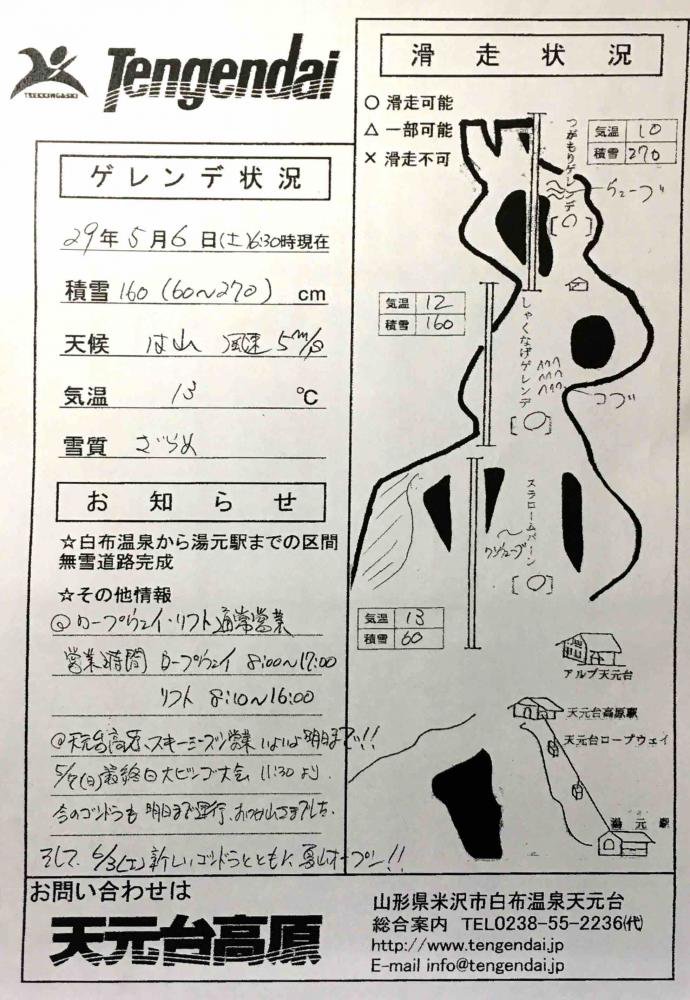 TREKKING&SKI
Tengendai
ゲレンデ状況
29年 5月 6日(土)6:30時現在
積雪 160 (60～270) cm
天候 は山 風速 5m/s
気温 13 ℃
雪質 ざらめ
お知らせ
☆白布温泉から湯元駅までの区間
無雪道路完成
☆その他情報
◎ロープウェイ・リフト通常営業
営業時間 ロープウェイ 8:00～17:00
リフト 8:10～16:00
◎天元台高原、スキーシーズン営業 いよいよ明日まで!!
5/7(日)最終日大ビンゴ大会 11:30より.
今のゴンドラも 明日まで運行、おつかれさまでした.
そして、6/3(土)新しいゴンドラとともに夏山オープン!!
滑走状況
○ 滑走可能
△ 一部可能
× 滑走不可
つがもりゲレンデ
[○]
気温 10
積雪 270
チューブ
気温 12
積雪 160
しゃくなげゲレンデ
[○]
コブ
スラロームバーン
[○]
気温 13
積雪 60
アルブ天元台
天元台高原駅
天元台ロープウェイ
湯元駅
お問い合わせは
天元台高原
山形県米沢市白布温泉天元台
総合案内 TEL0238-55-2236(代)
http://www.tengendai.jp
E-mail info@tengendai.jp